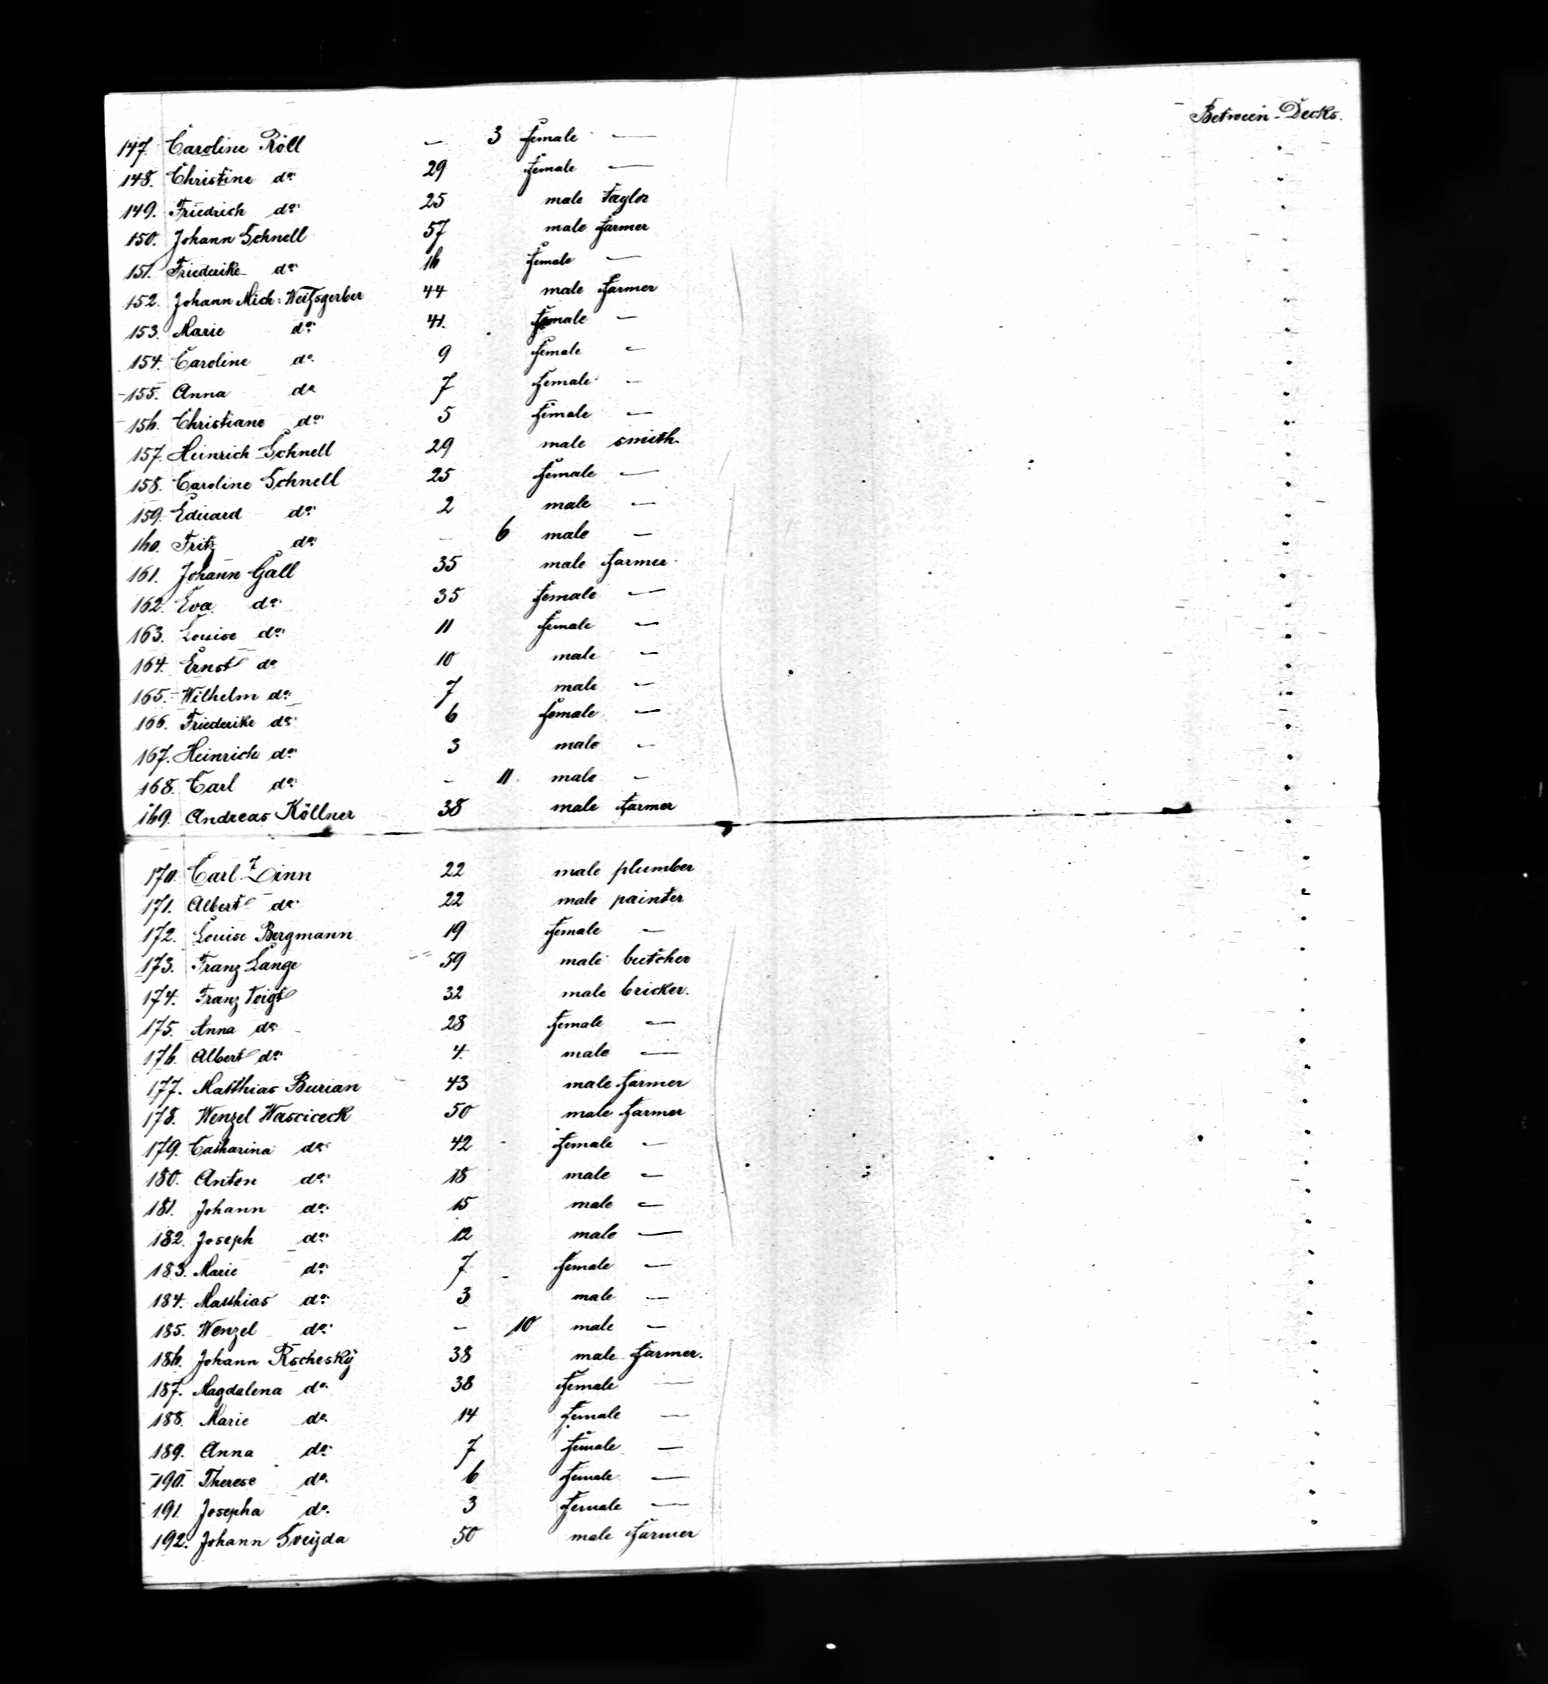 Between-Decks.
147. Caroline Röll — 3 female —
148. Christine do 29 female —
149. Friedrich do 25 male taylor
150. Johann Schnell 57 male farmer
151. Friederike do 16 female —
152. Johann Mich: Weitzgerber 44 male farmer
153. Marie do 41. female —
154. Caroline do 9 female —
155. Anna do 7 female —
156. Christiane do 5 female —
157. Heinrich Schnell 29 male smith
158. Caroline Schnell 25 female —
159. Eduard do 2 male —
160. Fritz do — 6 male —
161. Johann Gall 35 male farmer
162. Eva do 35 female —
163. Louise do 11 female —
164. Ernst do 10 male —
165. Wilhelm do 7 male —
166. Friederike do 6 female —
167. Heinrich do 3 male —
168. Carl do — 11. male —
169. Andreas Köllner 38 male farmer
170. Carl Zinn 22 male plumber
171. Albert do 22 male painter
172. Louise Bergmann 19 female —
173. Franz Lange 59 male butcher
174. Franz Voigt 32 male bricker.
175. Anna do 28 female —
176. Albert do 4. male —
177. Matthias Burian 43 male farmer
178. Wenzel Wasciceck 50 male farmer
179. Catharina do 42 female —
180. Anton do 18 male —
181. Johann do 15 male —
182. Joseph do 12 male —
183. Marie do 7 female —
184. Matthias do 3 male —
185. Wenzel do — 10 male —
186. Johann Rschesky 38 male farmer.
187. Magdalena do 38 female —
188. Marie do 14 female —
189. Anna do 7 female —
190. Therese do 6 female —
191. Josepha do 3 female —
192. Johann Sveyda 50 male farmer